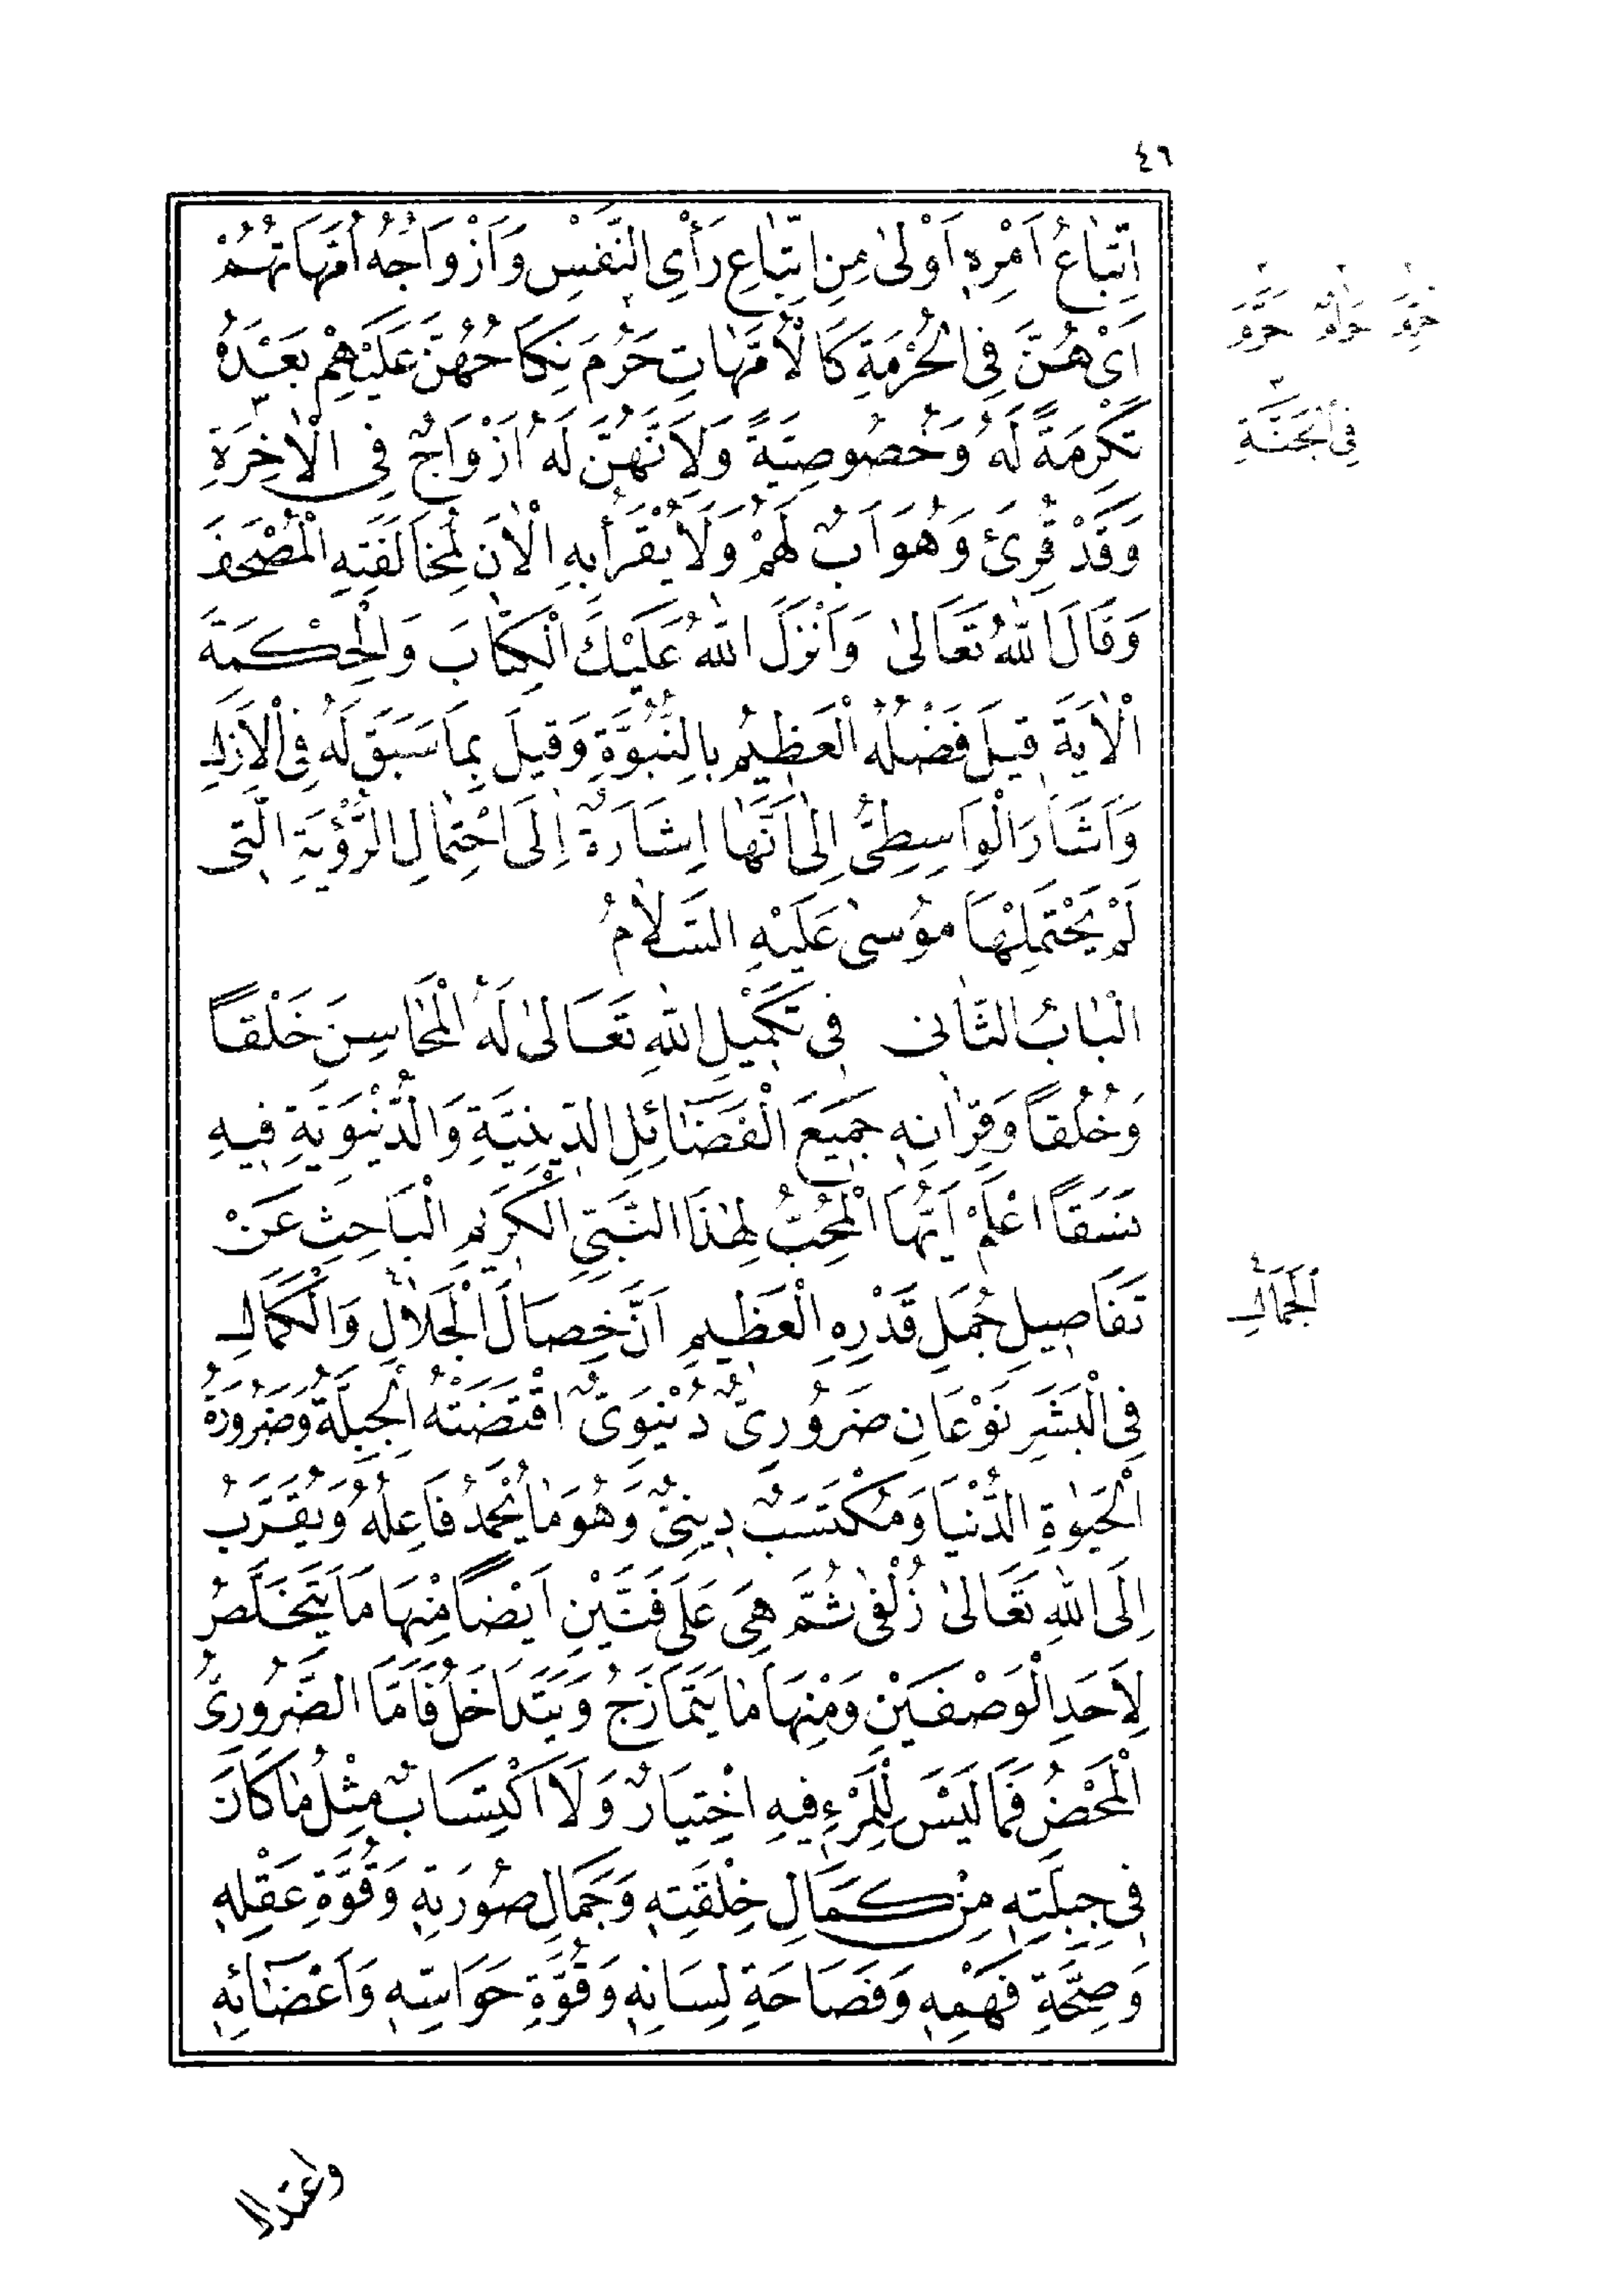 ٤٦
اِتِّبَاعُ اَمْرِهِ اَوْلىٰ مِنِ اتِّبَاعِ رَأْىِ النَّفْسِ وَاَزْوَاجُهُ اُمَّهَاتُهُمْ
اَىْ هُنَّ فِى الْحُرْمَةِ كَالْاُمَّهَاتِ حَرُمَ نِكَاحُهُنَّ عَلَيْهِمْ بَعْدَهُ
تَكْرِمَةً لَهُ وَخُصُوصِيَّةً وَلِاَنَّهُنَّ لَهُ اَزْوَاجٌ فِى الْاٰخِرَةِ
وَقَدْ قُرِئَ وَهُوَ اَبٌ لَهُمْ وَلَا يُقْرَأُ بِهِ الْاٰنَ لِمُخَالَفَتِهِ الْمُصْحَفَ
وَقَالَ اللّٰهُ تَعَالىٰ وَاَنْزَلَ اللّٰهُ عَلَيْكَ الْكِتَابَ وَالْحِكْمَةَ
الْاٰيَةَ قِيلَ فَضْلُهُ الْعَظِيمُ بِالنُّبُوَّةِ وَقِيلَ بِمَا سَبَقَ لَهُ فِى الْاَزَلِ
وَاَشَارَ الْوَاسِطِىُّ اِلىٰ اَنَّهَا اِشَارَةٌ اِلَى احْتِمَالِ الرُّؤْيَةِ الَّتِى
لَمْ يَحْتَمِلْهَا مُوسىٰ عَلَيْهِ السَّلَامُ
الْبَابُ الثَّانِى فِى تَكْمِيلِ اللّٰهِ تَعَالىٰ لَهُ الْمَحَاسِنَ خَلْقاً
وَخُلُقاً وَقِرَانِهِ جَمِيعَ الْفَضَائِلِ الدِّينِيَّةِ وَالدُّنْيَوِيَّةِ فِيهِ
نَسَقاً اعْلَمْ اَيُّهَا الْمُحِبُّ لِهٰذَا النَّبِىِّ الْكَرِيمِ الْبَاحِثِ عَنْ
تَفَاصِيلِ جُمَلِ قَدْرِهِ الْعَظِيمِ اَنَّ خِصَالَ الْجَلَالِ وَالْكَمَالِ
فِى الْبَشَرِ نَوْعَانِ ضَرُورِىٌّ دُنْيَوِىٌّ اقْتَضَتْهُ الْجِبِلَّةُ وَضَرُورَةُ
الْحَيٰوةِ الدُّنْيَا وَمُكْتَسَبٌ دِينِىٌّ وَهُوَ مَا يُحْمَدُ فَاعِلُهُ وَيُقَرِّبُ
اِلَى اللّٰهِ تَعَالىٰ زُلْفىٰ ثُمَّ هِىَ عَلَى فَنَّيْنِ اَيْضاً مِنْهَا مَا يَتَخَلَّصُ
لِاَحَدِ الْوَصْفَيْنِ وَمِنْهَا مَا يَتَمَازَجُ وَيَتَدَاخَلُ فَاَمَّا الضَّرُورِىُّ
الْمَحْضُ فَمَا لَيْسَ لِلْمَرْءِ فِيهِ اخْتِيَارٌ وَلَا اكْتِسَابٌ مِثْلُ مَا كَانَ
فِى جِبِلَّتِهِ مِنْ كَمَالِ خِلْقَتِهِ وَجَمَالِ صُورَتِهِ وَقُوَّةِ عَقْلِهِ
وَصِحَّةِ فَهْمِهِ وَفَصَاحَةِ لِسَانِهِ وَقُوَّةِ حَوَاسِّهِ وَاَعْضَائِهِ
فِى الْجَنَّةِ
الْجَمَالِ